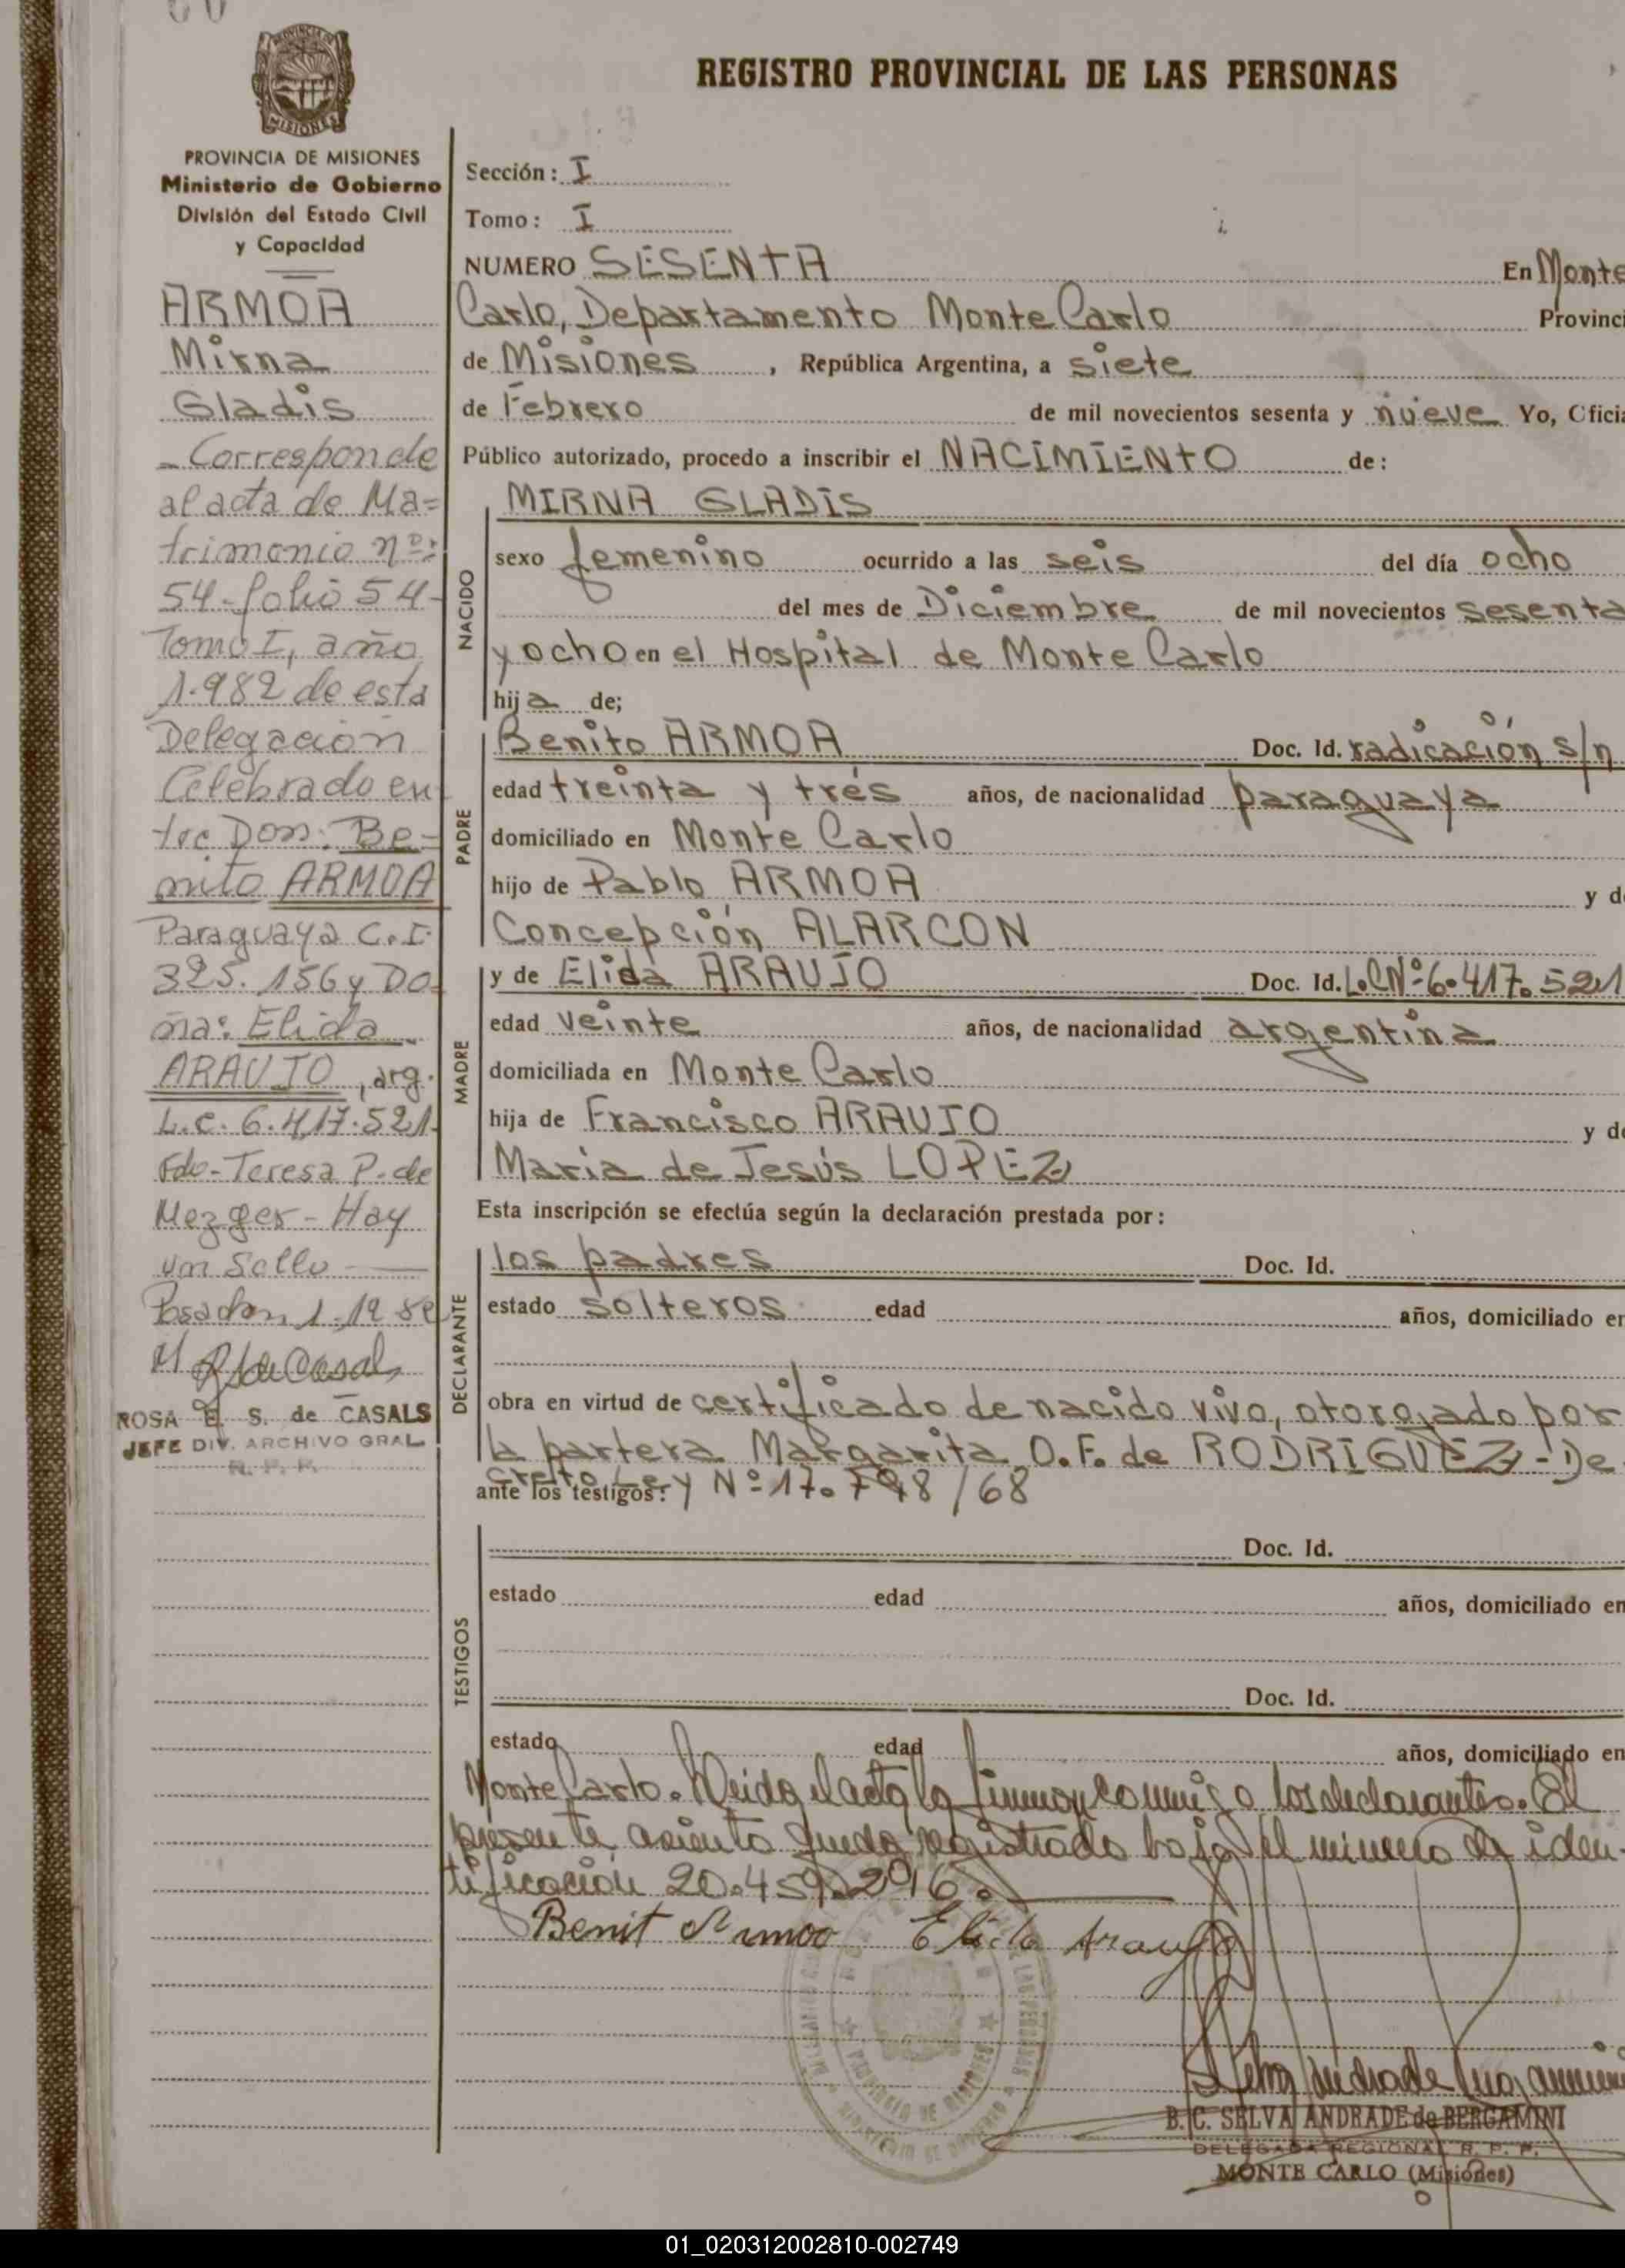 60
PROVINCIA DE MISIONES
Ministerio de Gobierno
División del Estado Civil
y Capacidad
ARMOA
Mirna
Gladis
- Corresponde
al acta de Ma=
trimonio nº:
54 - folio 54 -
Tomo I, año
1.982 de esta
Delegación
Celebrado en
tre Don: Be-
nito ARMOA
Paraguaya C.I.
325.156 y Do-
ña: Elida
ARAUJO, arg.
L.C. 6.417.521.
Fdo - Teresa P. de
Mezger - Hay
un Sello
Posadas 1-12-
ROSA E. S. de CASALS
JEFE DIV. ARCHIVO GRAL
R. P. P.
REGISTRO PROVINCIAL DE LAS PERSONAS
Sección: I
Tomo: I
NUMERO SESENTA En Monte
Carlo, Departamento Monte Carlo Provinci
de Misiones, República Argentina, a siete
de Febrero de mil novecientos sesenta y nueve Yo, Oficia
Público autorizado, procedo a inscribir el NACIMIENTO de:
NACIDO
MIRNA GLADIS
sexo femenino ocurrido a las seis del día ocho
del mes de Diciembre de mil novecientos sesenta
y ocho en el Hospital de Monte Carlo
hija de;
PADRE
Benito ARMOA Doc. Id. radicación s/n
edad treinta y trés años, de nacionalidad paraguaya
domiciliado en Monte Carlo
hijo de Pablo ARMOA y d
Concepción ALARCON
MADRE
y de Elida ARAUJO Doc. Id. L.C Nº 6.417.521
edad veinte años, de nacionalidad argentina
domiciliada en Monte Carlo
hija de Francisco ARAUJO y de
Maria de Jesús LOPEZ
Esta inscripción se efectúa según la declaración prestada por:
DECLARANTE
los padres Doc. Id.
estado solteros edad años, domiciliado en
obra en virtud de certificado de nacido vivo, otorgado por
la partera Margarita O.F. de RODRIGUEZ - De
creto Ley Nº 17.798/68
ante los testigos:
TESTIGOS
Doc. Id.
estado edad años, domiciliado en
Doc. Id.
estado edad años, domiciliado en
Monte Carlo. Leida el acta la firman conmigo los declarantes. El
presente asiento queda registrado bajo el número de iden-
tificación 20.459.296.
Benit Armoa Elida Araujo
B. C. SELVA ANDRADE de BERGAMINI
DELEGADA REGIONAL R. P. P.
MONTE CARLO (Misiones)
01_020312002810-002749